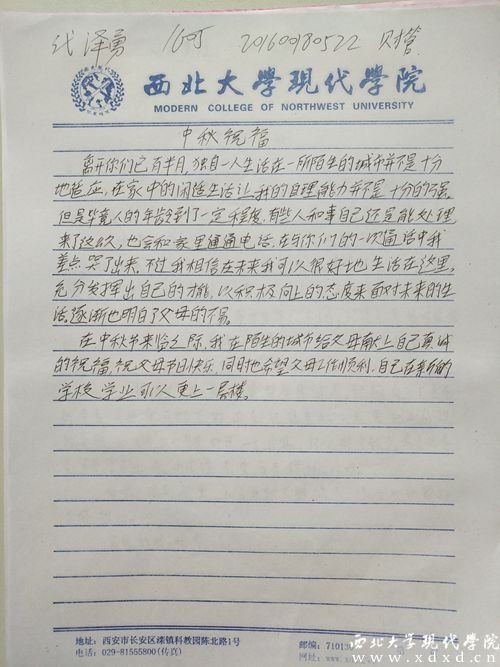 代泽勇 1605 20160180522 财管
西北大學现代學院
MODERN COLLEGE OF NORTHWEST UNIVERSITY
中秋祝福
离开你们已有半月,独自一人生活在一所陌生的城市并不是十分
地适应,在家中的闲适生活让我的自理能力并不是十分的强。
但是毕竟人的年龄到了一定程度,有些人和事自己还是能处理
来了这么久,也会和家里通通电话。在与你们的一次通话中我
差点哭了出来,不过我相信在未来我可以很好地生活在这里,
充分发挥出自己的才能,以积极向上的态度来面对未来的生
活,逐渐也明白了父母的不易。
在中秋节来临之际,我在陌生的城市给父母献上自己真诚
的祝福,祝父母节日快乐,同时也希望父母工作顺利,自己在新的
学校学业可以更上一层楼。
地址:西安市长安区滦镇科教园陈北路1号
电话:029-81555800(传真)
邮编:7101
网址:www.
西北大学现代学院
www.xdxd.cn